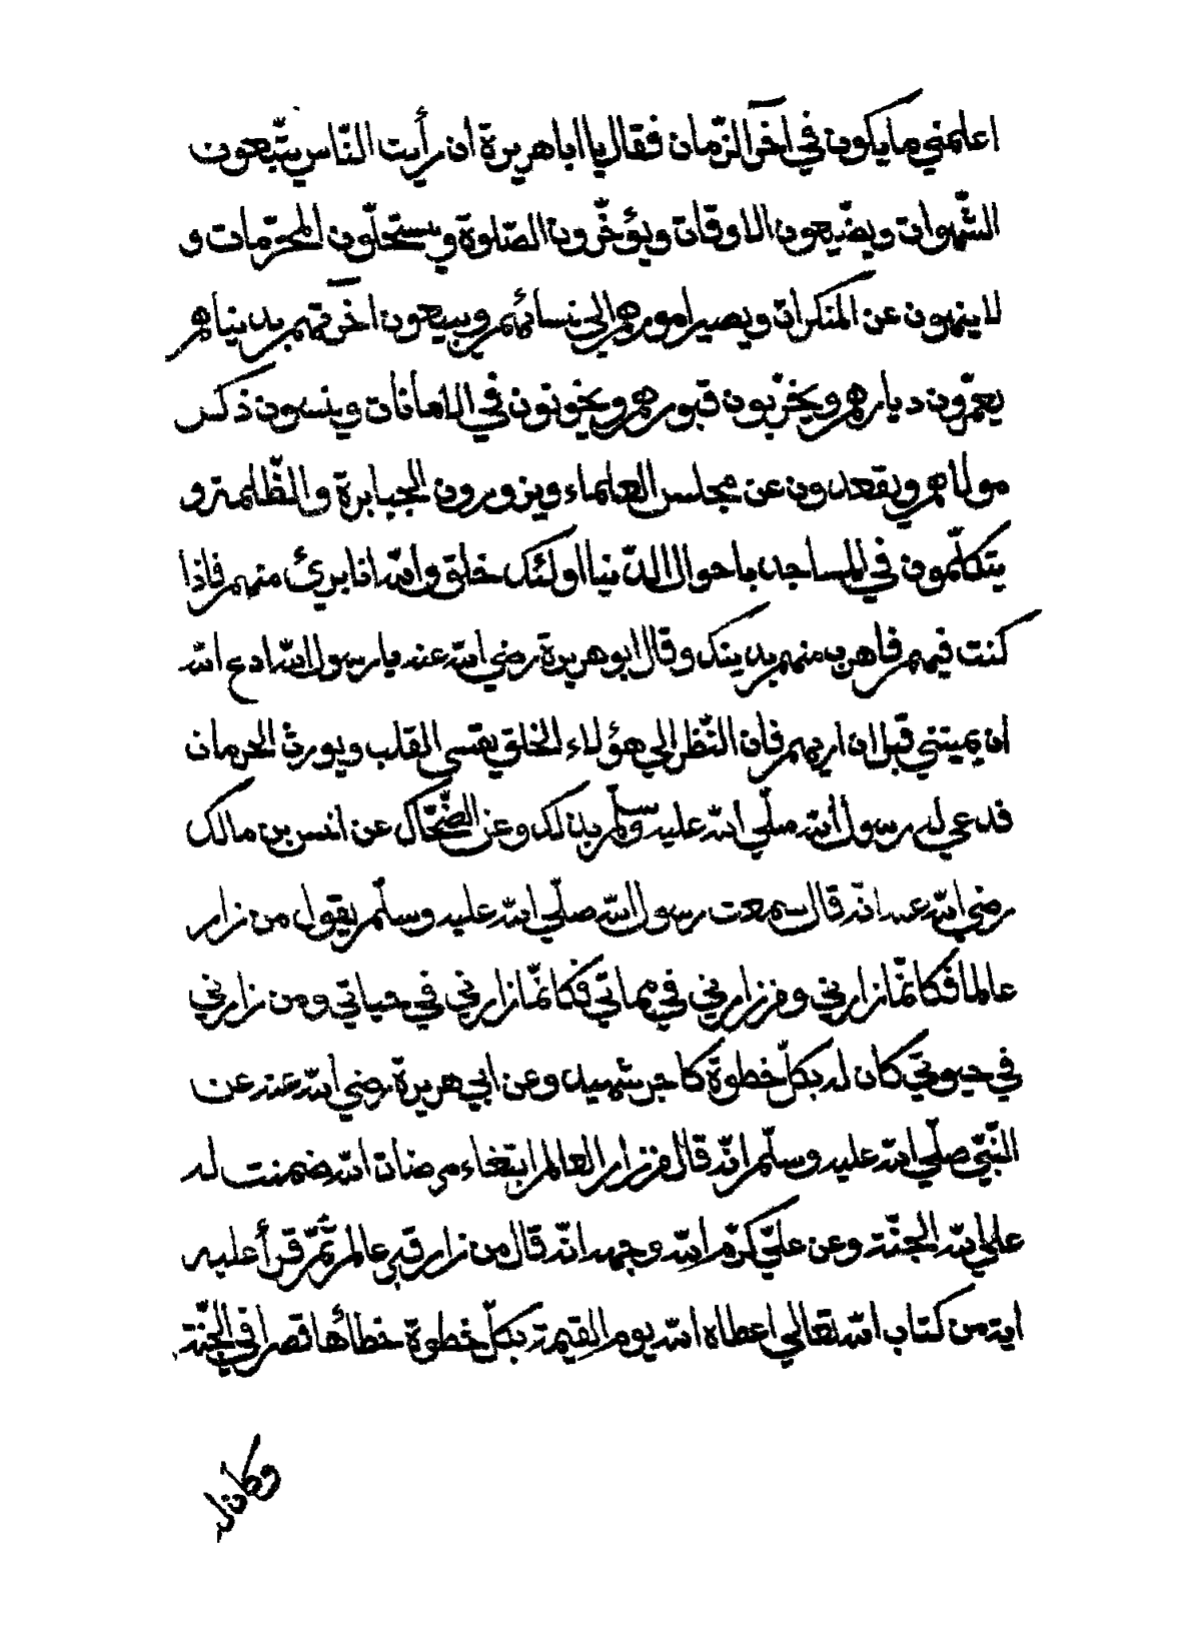 اعلمني مايكون في اخر الزّمان فقال يا اباهريرة ان رأيت النّاس يتّبعون
الشّهوات ويضّيعون الاوقات ويؤخّرون الصّلوة ويستحلّون المحرّمات و
لا ينهون عن المنكرات ويصير امورهم الي نسائهم ويبيعون اخرتهم بدنياهم
يعمّرون ديارهم ويخرّبون قبورهم ويخونون في الامانات وينسون ذكر
مولاهم ويقعدون عن مجلس العلماء ويزورون الجبابرة والظّالمة و
يتكلّمون في المساجد باحوال الدّنيا اولئك خلق والله انا برئ منهم فاذا
كنت فيهم فاهرب منهم بدينك وقال ابوهريرة رضي الله عنه يا رسول الله ادع الله
ان يميتني قبل ان اريهم فان النّظر الي هؤلاء الخلق يقسى القلب ويورث الحرمان
فدعي له رسول الله صلّي الله عليه وسلّم بذلك وعن الضّحّاك عن انس بن مالك
رضي الله عنه انّه قال سمعت رسول الله صلّي الله عليه وسلّم يقول من زار
عالما فكانّما زارني ومن زارني في مماتي فكانّما زارني في حياتي ومن زارني
في حيوتي كان له بكلّ خطوة كاجر شهيد وعن ابي هريرة رضي الله عنه عن
النّبيّ صلّي الله عليه وسلّم انّه قال من زار العالم ابتغاء مرضات الله ضمنت له
علي الله الجنّة وعن عليّ كرّم الله وجهه انّه قال من زار قبر عالم ثمّ قرأ عليه
اية من كتاب الله تعالي اعطاه الله يوم القيمة بكلّ خطوة خطائها قصرا في الجنّة
وكان له